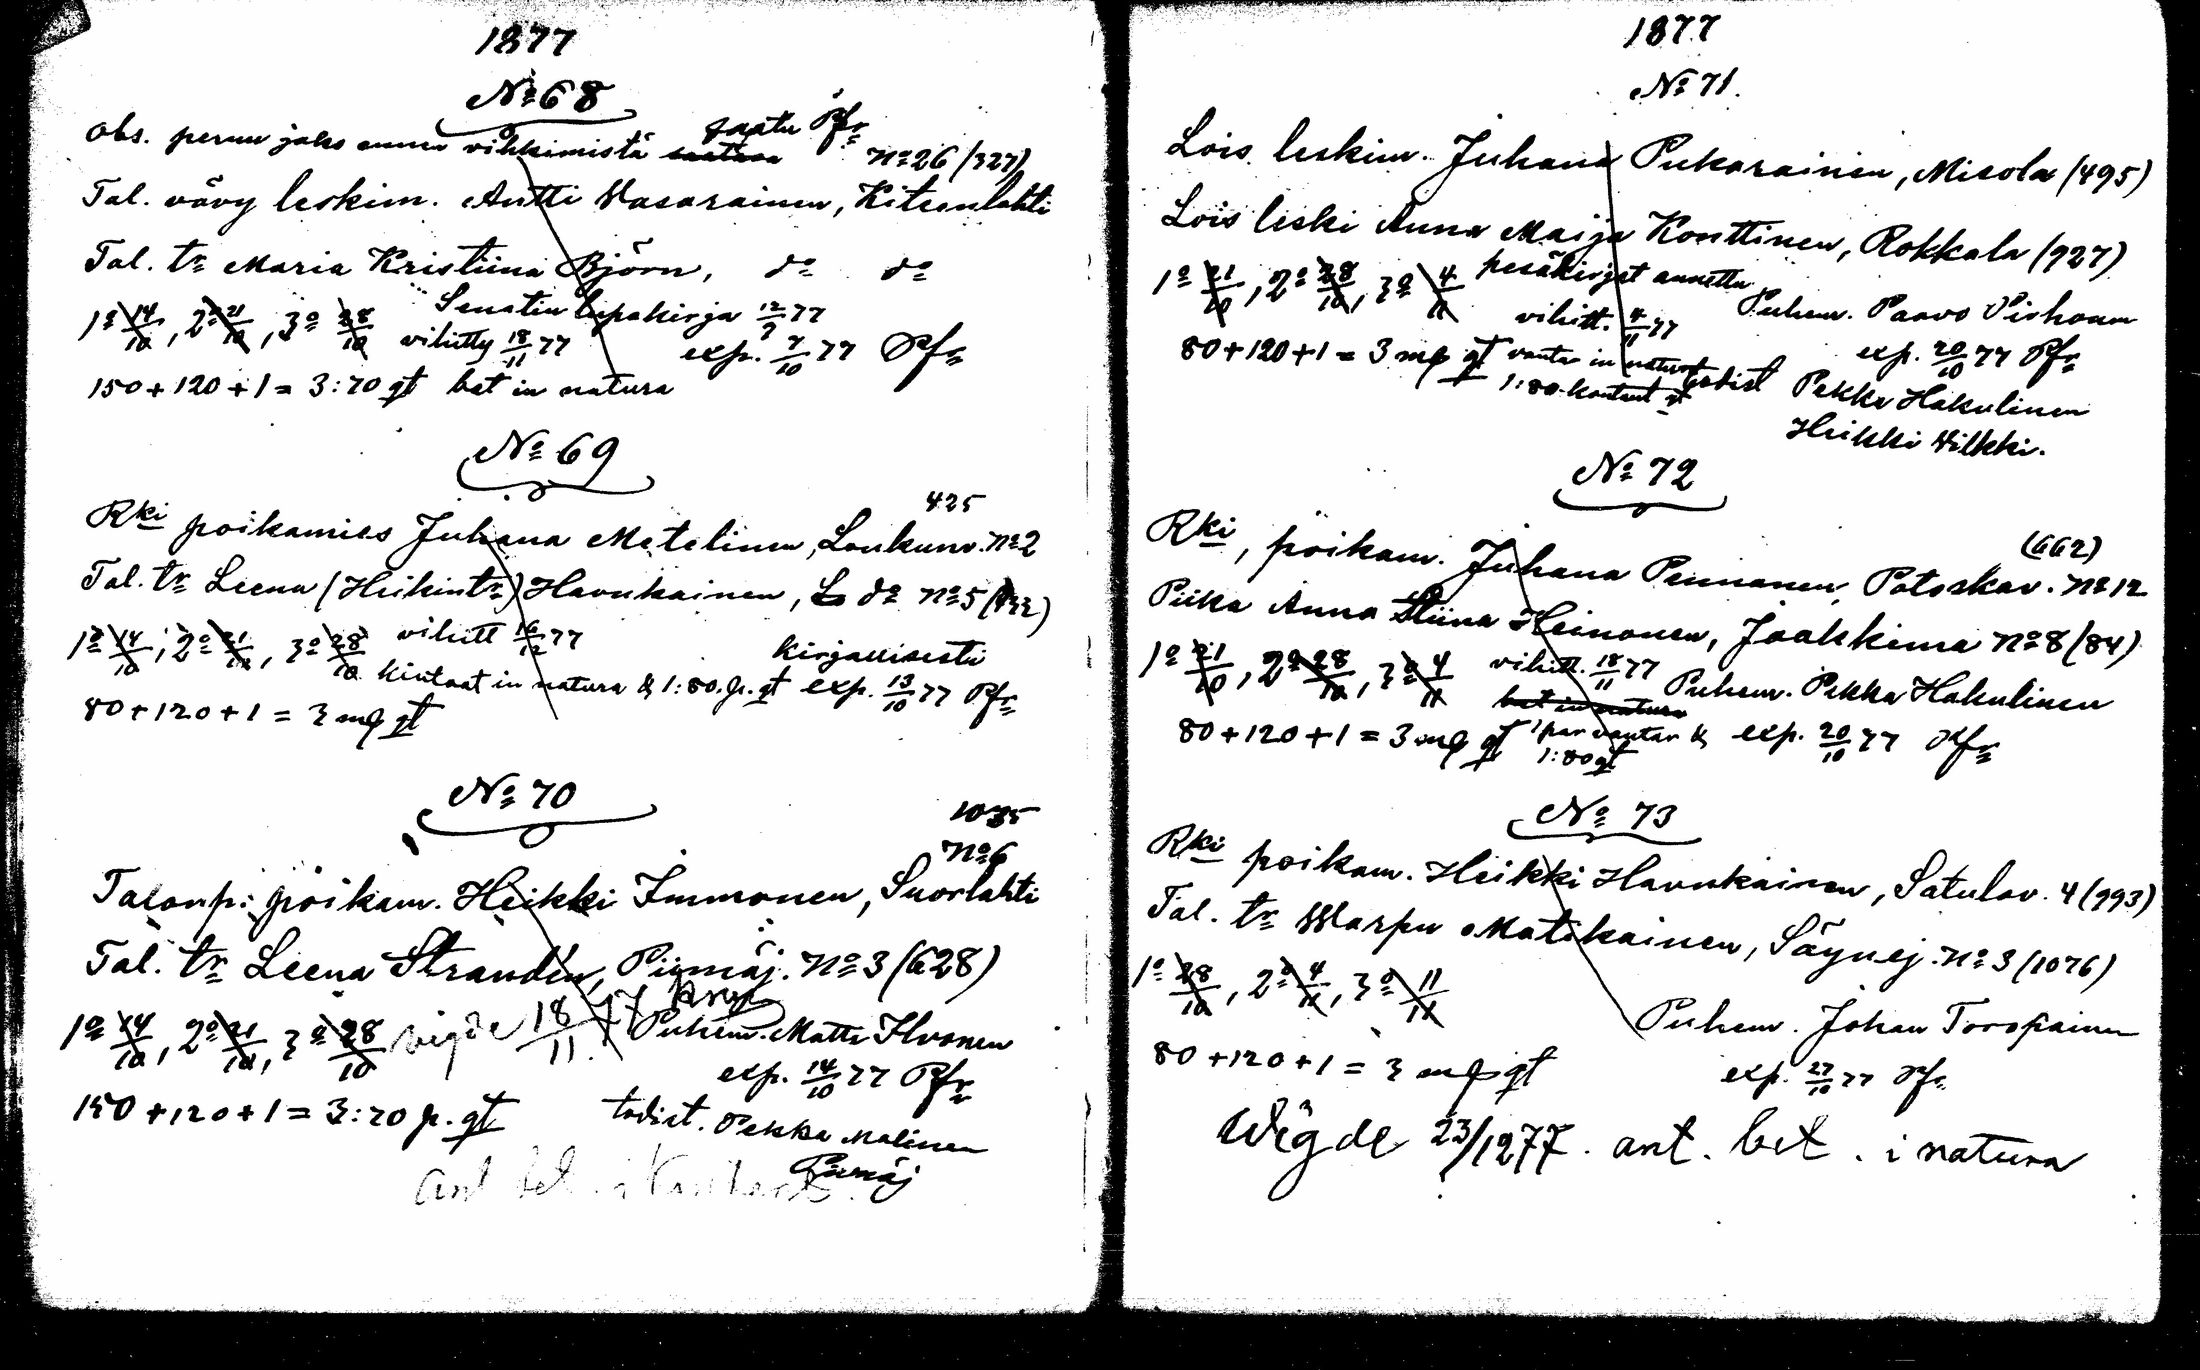 1877
No 68
Obs. perun jako ennen vihkimistä saatava saatu Pfr
No 26 (327)
Tal. vävy leskim. Antti Vasarainen, Kitsenlahti
Tal. tr Maria Kristiina Björn, do do
1o 14/10, 2o 21/10, 3o 28/10 Senatin lupakirja 12/9 77
vihitty 18/11 77 exp. 7/10 77 Pfr
150+120+1= 3:70 gt bet in natura
No 69
425
Rki poikamies Juhana Metelinen, Loukunv. No 2
Tal. tr Leena (Heikintr) Havukainen, do No 5
1o 14/10, 2o 21/10, 3o 28/10 vihitt 16/12 77 kirjallisesti
kintaat in natura & 1:80 p. gt exp. 13/10 77 Pfr
80+120+1 = 3 mq gt
No 70
1035
No 6
Talonp: poikam. Heikki Immonen, Suorlahti
Tal. tr Leena Strandén, Piimäj. No 3 (628)
1o 14/10, 2o 21/10, 3o 28/10 vigde 18/11 77
Puhem. Matti Ilvonen
exp. 14/10 77 Pfr
150+120+1 = 3:70 p. gt todist. Pekka Malinen
Piimäj
ant bet i kontant
1877
No 71.
Lois leskim. Juhana Pukarainen, Miesola (495)
Lois leski Anna Maija Konttinen, Rokkala (927)
1o 21/10, 2o 28/10, 3o 4/11 pesäkirjat annettu
vihitt. 4/11 77 Puhem. Paavo Vishoum
80+120+1 = 3 mq gt vantar in natura exp. 20/10 77 Pfr
1:80 kontant gt todist Pekka Hakulinen
Heikki Vilkki.
No 72
(662)
Rki, poikam. Juhana Pennanen, Potoskav. No 12
Piika Anna Stiina Heinonen, Jaakkima No 8 (84)
1o 21/10, 2o 28/10, 3o 4/11 vihitt. 18/11 77 Puhem. Pekka Hakulinen
bet in natura
80+120+1 = 3 mq gt 1 par vantar & exp. 20/10 77 Pfr
1:80 gt
No 73
Rki poikam. Heikki Havukainen, Satulav. 4 (993)
Tal. tr Warpu Matikainen, Säynej. No 3 (1076)
1o 28/10, 2o 4/11, 3o 11/11
Puhem. Johan Toropainen
80+120+1 = 3 mq gt exp. 27/10 77 Pfr
Wigde 23/12 77. ant. bet. i natura